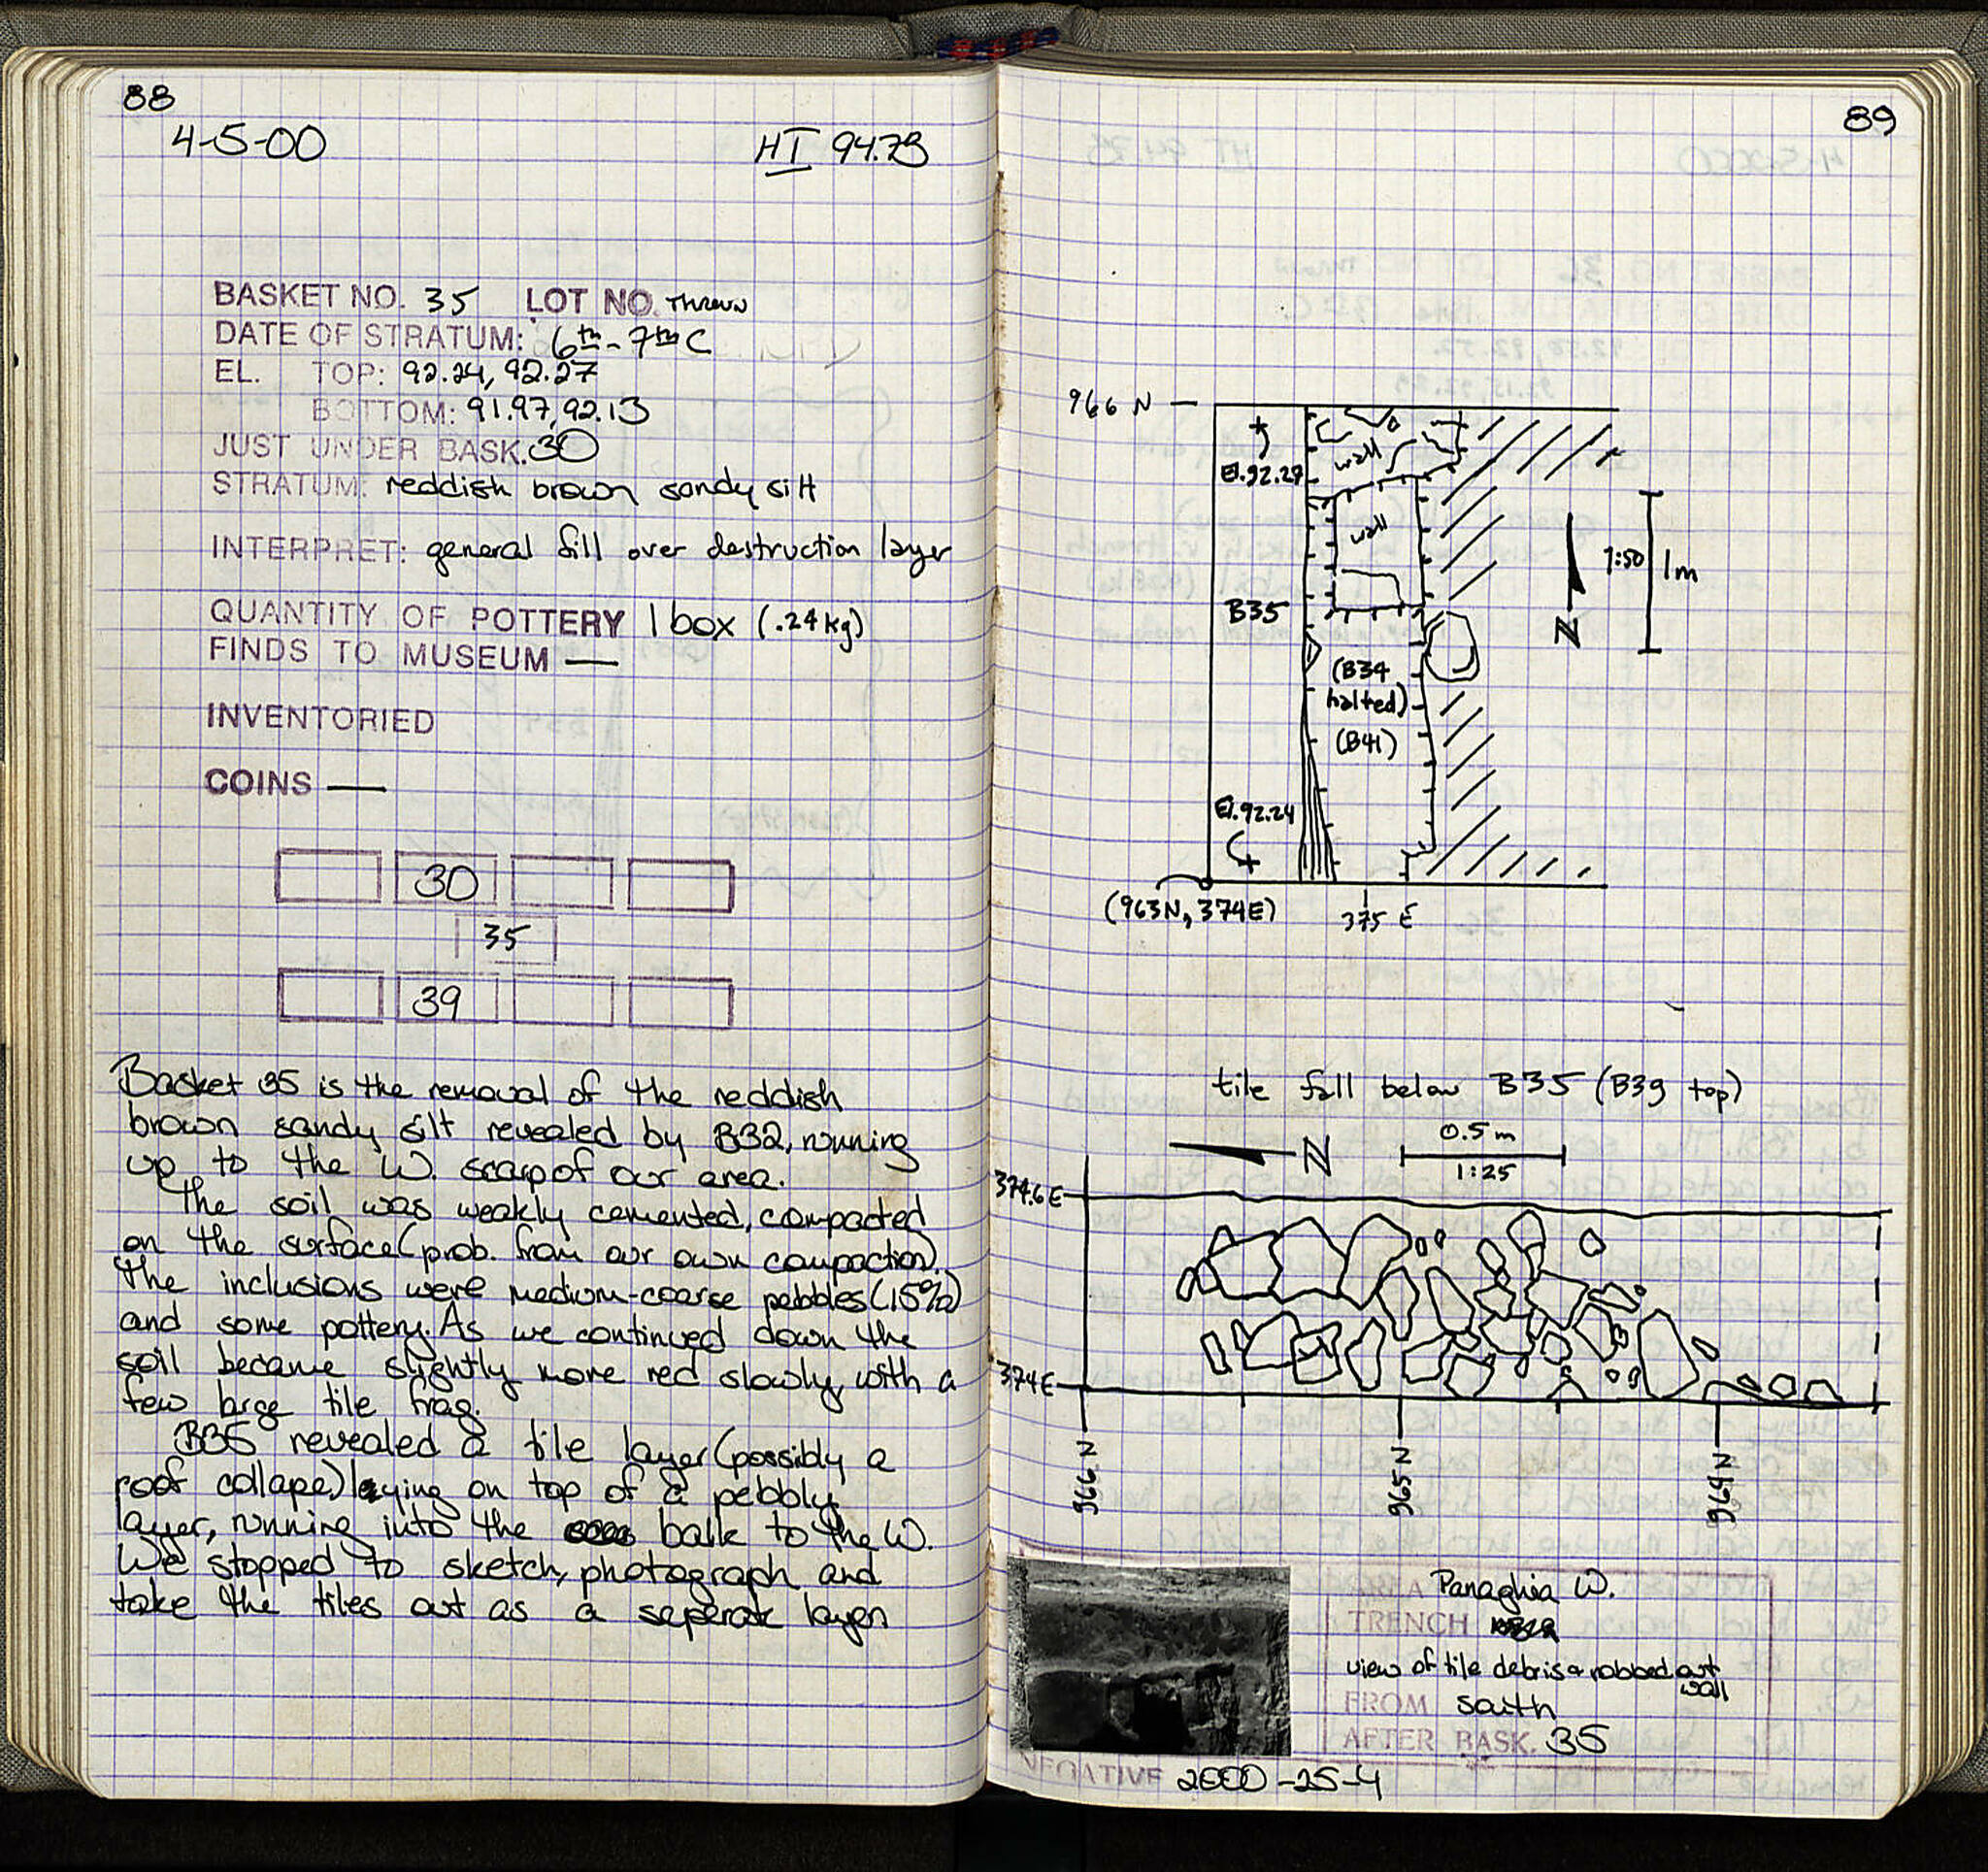 88
4-5-00 HI 94.73
BASKET NO. 35 LOT NO. Thrown
DATE OF STRATUM: 6th - 7th C
EL. TOP: 92.24, 92.27
BOTTOM: 91.97, 92.13
JUST UNDER BASK. 30
STRATUM: reddish brown sandy silt
INTERPRET: general fill over destruction layer
QUANTITY OF POTTERY 1 box (.24 kg)
FINDS TO MUSEUM —
INVENTORIED
COINS —
30
35
39
Basket 35 is the removal of the reddish
brown sandy silt revealed by B32, running
up to the W. scarp of our area.
The soil was weakly cemented, compacted
on the surface (prob. from our own compaction).
The inclusions were medium-coarse pebbles (15%)
and some pottery. As we continued down the
soil became slightly more red slowly, with a
few large tile frag.
B35 revealed a tile layer (possibly a
roof collape) laying on top of a pebbly
layer, running into the balk to the W.
We stopped to sketch, photograph and
take the tiles out as a seperate layer
89
966 N
El. 92.27
wall
wall
1:50 1m
N
B35
(B34
halted)
(B41)
El. 92.24
(963N, 374E)
375 E
tile fall below B35 (B39 top)
N
0.5 m
1:25
374.6 E
374 E
966 N
965 N
964 N
AREA Panaghia W.
TRENCH
view of tile debris & robbed out
wall
FROM south
AFTER BASK. 35
NEGATIVE 2000-25-4